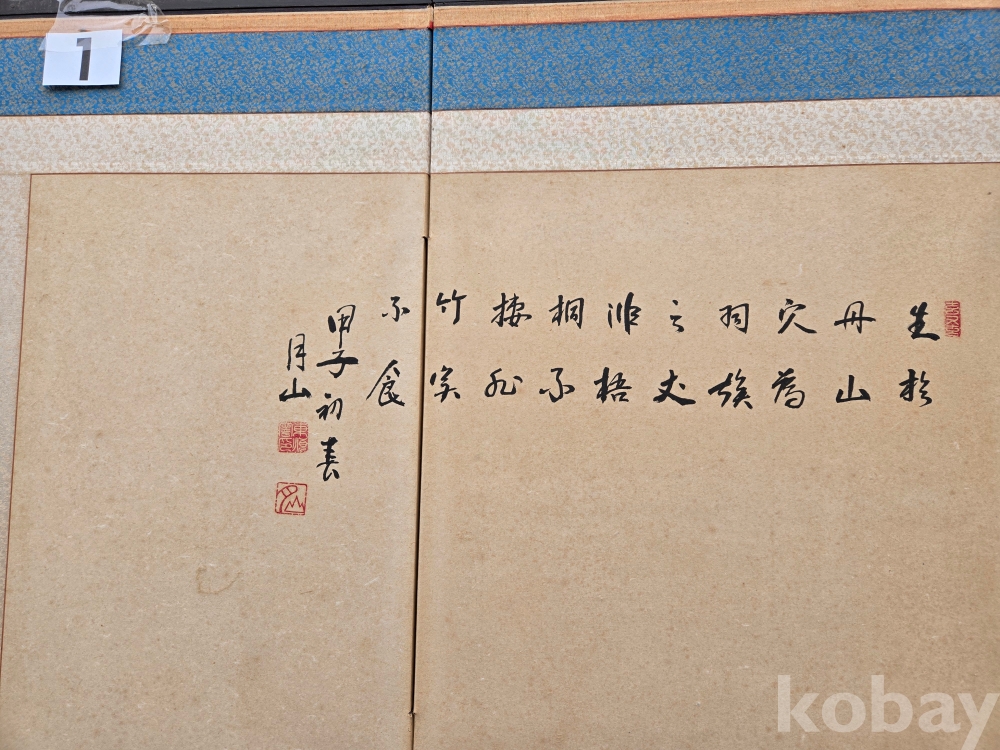 生於
丹山
穴為
羽族
之長
非梧
桐不
棲非
竹實
不食
甲子初春
月山
1
kobay